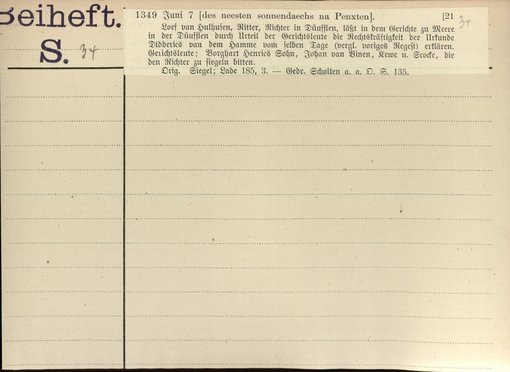 Beiheft.
S. 34
1349 Juni 7 [des neesten sonnendaechs na Penxten]. [21
34
Loef van Hulhusen, Ritter, Richter in Düufflen, läßt in dem Gerichte zu Meere
in der Düufflen durch Urteil der Gerichtsleute die Rechtskräftigkeit der Urkunde
Didderics van dem Hamme vom selben Tage (vergl. voriges Regest) erklären.
Gerichtsleute: Borghart Henrics Sohn, Johan van Vinen, Keuve u. Stocke, die
den Richter zu siegeln bitten.
Orig. Siegel; Lade 185, 3. — Gedr. Scholten a. a. O. S. 135.